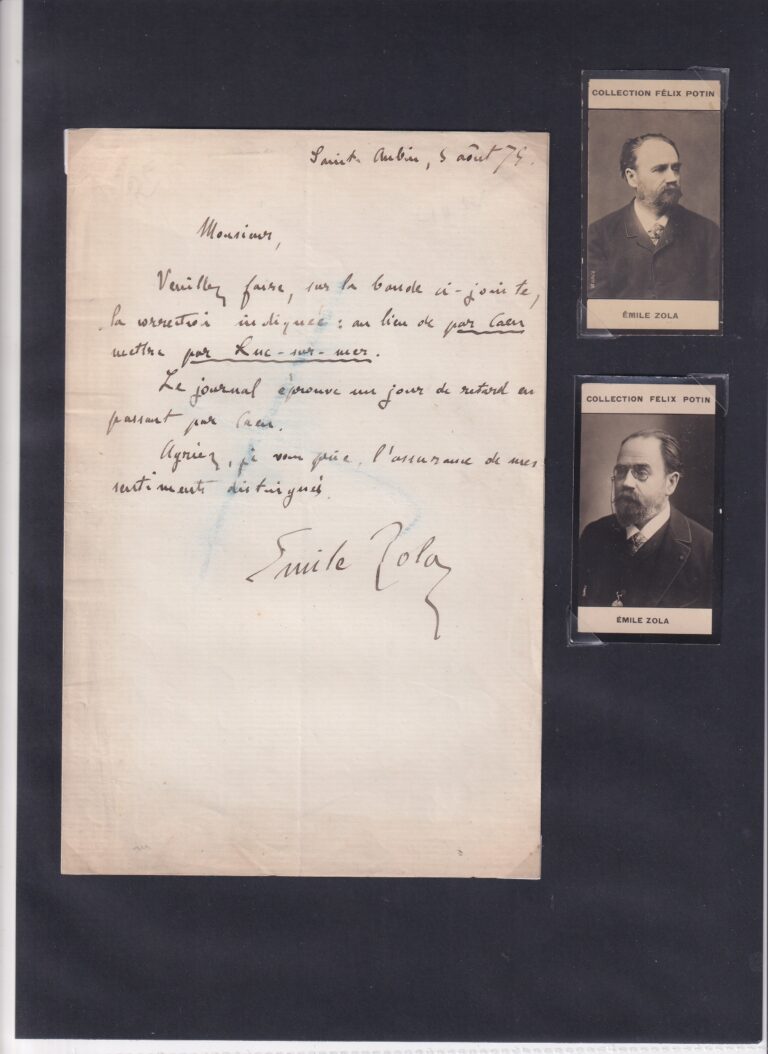 Saint-Aubin, 5 août 75.
Monsieur,
Veuillez faire, sur la bande ci-jointe,
la correction indiquée : au lieu de par Caen
mettre par Luc-sur-mer.
Le journal éprouve un jour de retard en
passant par Caen.
Agréez, je vous prie, l'assurance de mes
sentiments distingués.
Emile Zola
COLLECTION FÉLIX POTIN
ÉMILE ZOLA
COLLECTION FÉLIX POTIN
ÉMILE ZOLA